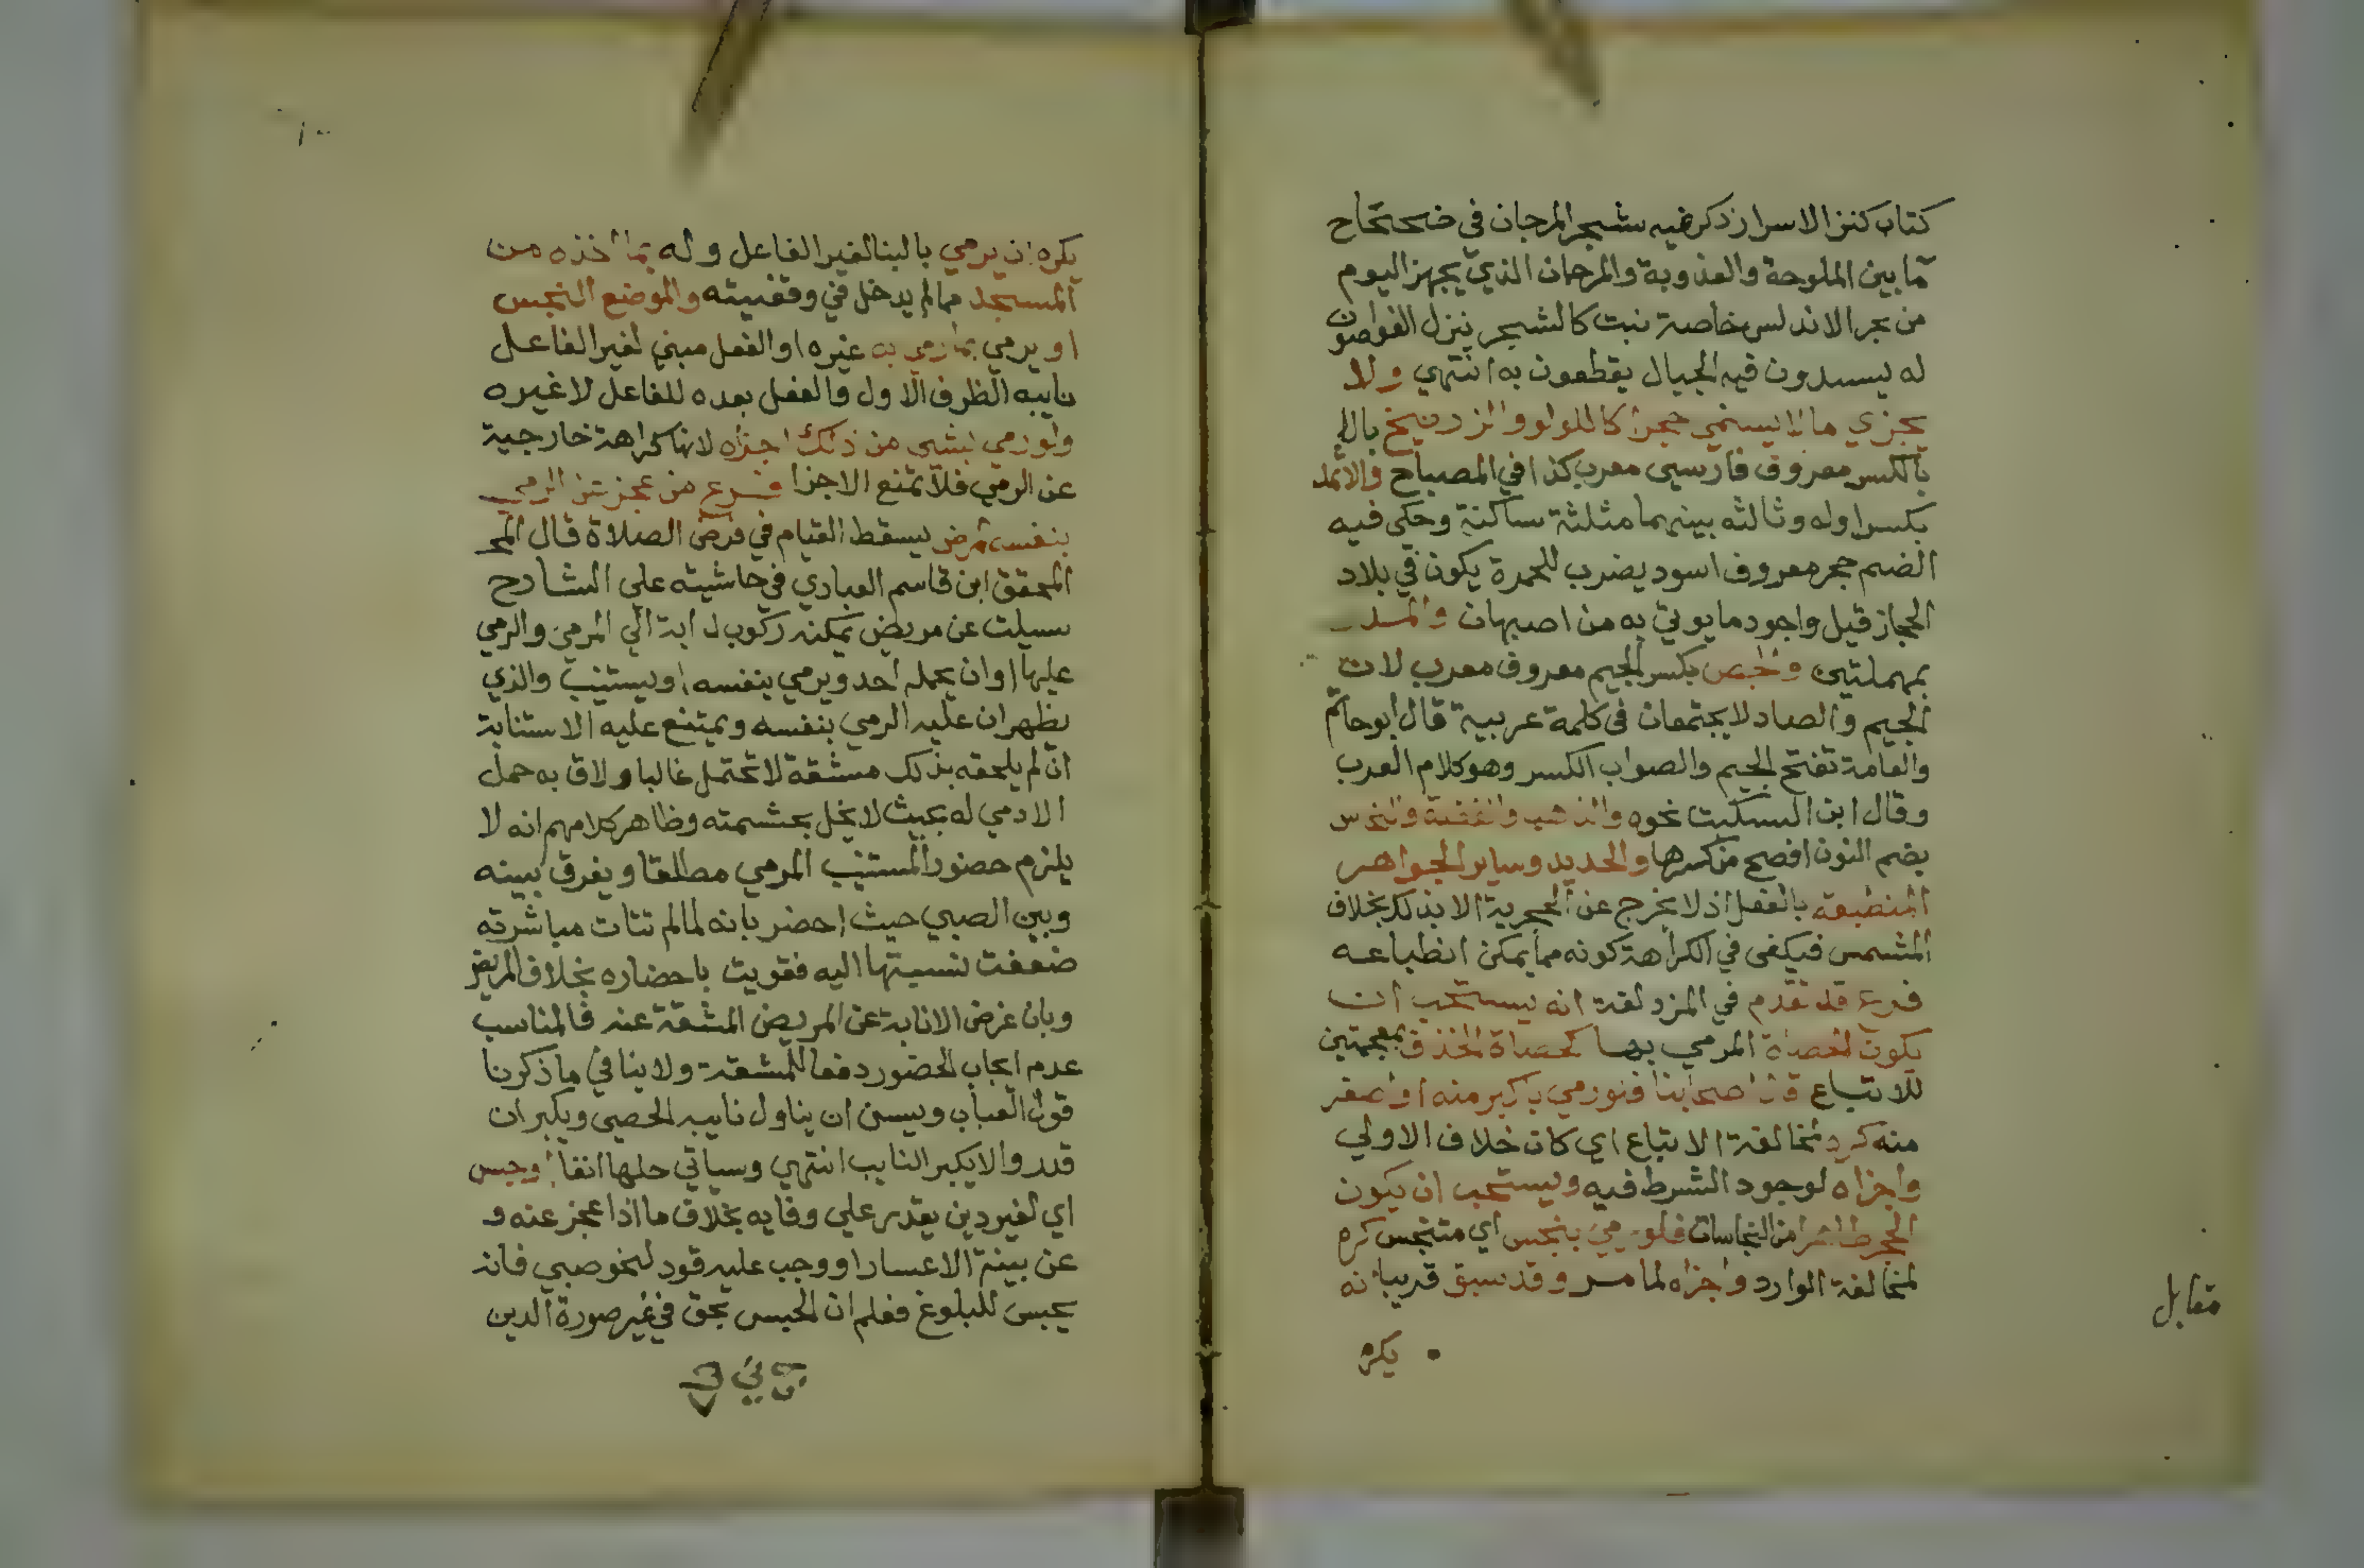 كتاب كنز الاسرار ذكر فيه شجر المرجان في ضحضاح
ما بين الملوحة والعذوبة والمرجان الذي يجهز اليوم
من بحر الاندلس خاصة نبت كالشجر ينزل الغواصون
له ليسدون فيه الحبال يقطعون به انتهي ولا
يجزي ما لا يسمي حجرا كاللولو والزرنيخ بال
بالكسر معروف فارسي معرب كذا في المصباح والاثمد
بكسر اوله وثالثه بينهما مثلثة ساكنة وحكي فيه
الضم حجر معروف اسود يضرب للحمرة يكون في بلاد
الحجاز قيل واجود ما يوتي به من اصبهان والمدر
بمهملتين والجص بكسر الجيم معروف معرب لان
الجيم والصاد لا يجتمعان في كلمة عربية قال ابو حاتم
والعامة تفتح الجيم والصواب الكسر وهو كلام العرب
وقال ابن السكيت نحوه والذهب والفضة والنحاس
بضم النون افصح من كسرها والحديد وساير الجواهر
المنطبعة بالفعل اذ لا يخرج عن الحجرية الا بذلك بخلاف
المشمس فيكفي في الكراهة كونه مما يمكن انطباعه
فرع قد تقدم في المزدلفة انه يستحب ان
يكون الحصاة المرمي بها كحصاة الخذف بمعجمتين
للاتباع قال اصحابنا فلو رمي باكبر منه او اصغر
منه كره لمخالفة الاتباع اي كان خلاف الاولي
واجزاه لوجود الشرط فيه ويستحب ان يكون
الحجر طاهرا من النجاسات فلو رمي بنجس اي متنجس كره
لمخالفة الوارد واجزاه لما مر وقد سبق قريبا انه
يكره
مقابل
١٠٠
يكره ان يرمي بالبنا لغير الفاعل وله بما اخذه من
المسجد مما لم يدخل في وقفيته والموضع النجس
او يرمي بما رمي به غيره او الفعل مبني لغير الفاعل
نايبه الظرف الاول فالفعل بعده للفاعل لا غيره
ولو رمي بشي من ذلك اجزاه لانها كراهة خارجية
عن الرمي فلا تمنع الاجزا فرع من عجز عن الرمي
بنفسه لمرض يسقط القيام في فرض الصلاة قال المح
المحقق ابن قاسم العبادي في حاشيته علي الشارح
سيلت عن مريض يمكنه ركوب دابة الي المرمي والرمي
عليها او ان يحمله احد ويرمي بنفسه او يستنيب والذي
يظهر ان عليه الرمي بنفسه ويمتنع عليه الاستنابة
ان لم يلحقه بذلك مشقة لا تحتمل غالبا ولاق به حمل
الادمي له بحيث لا يخل بحشمته وظاهر كلامهم انه لا
يلزم حضور المستنيب المرمي مطلقا ويفرق بينه
وبين الصبي حيث احضر بانه لما لم تتات مباشرته
ضعفت نسبتها اليه فقويت باحضاره بخلاف المريض
وبان غرض الانابة عن المريض المشقة عنه فالمناسب
عدم ايجاب الحضور دفعا للمشقة ولا ينافي ما ذكرنا
قول العباب ويسن ان يناول نايبه الحصي ويكبر ان
قدر والا يكبر النايب انتهي وسياتي حلها انفا او حبس
اي لغير دين يقدر علي وفايه بخلاف ما اذا عجز عنه و
عن بينة الاعسار او وجب عليه قود لنحو صبي فانه
يحبس للبلوغ فعلم ان الحبس بحق في غير صورة الدين